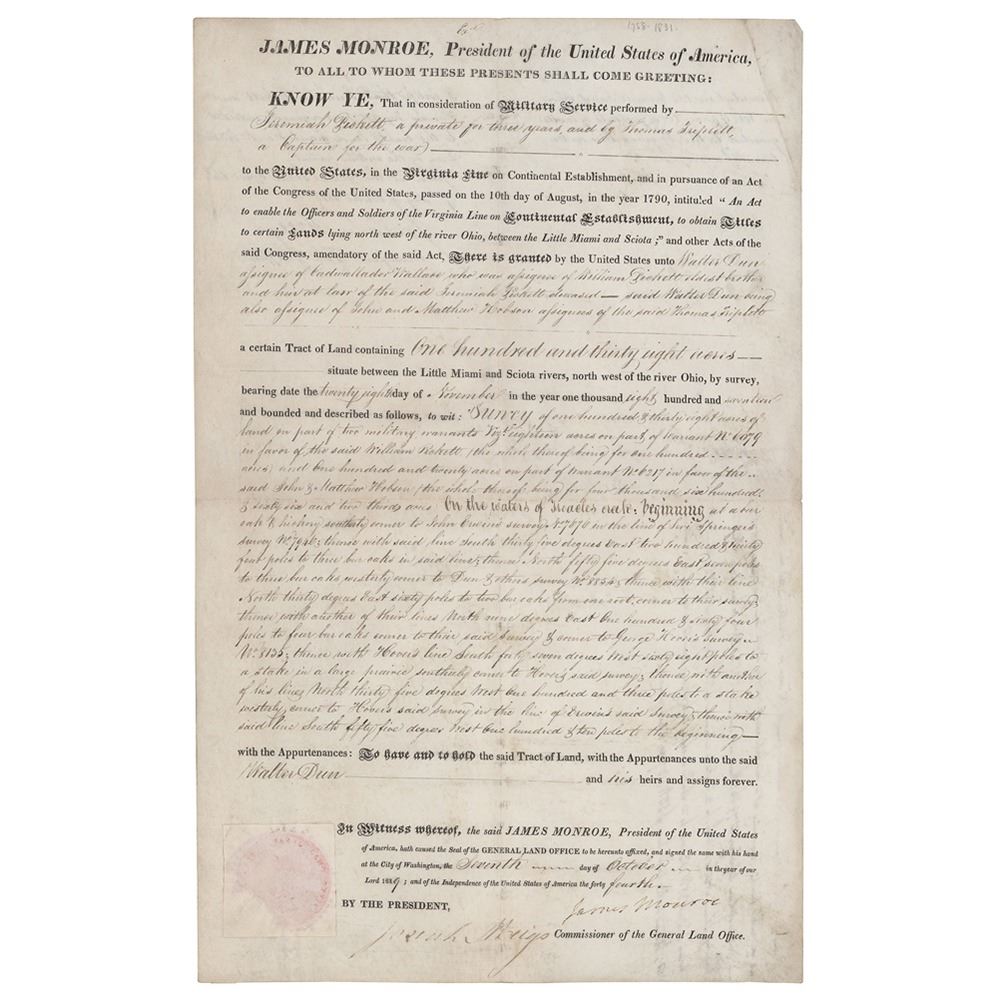 1758-1831.
JAMES MONROE, President of the United States of America,
TO ALL TO WHOM THESE PRESENTS SHALL COME GREETING:
KNOW YE, That in consideration of Military Service performed by
Jeremiah Piskett, a private for three years, and by Thomas Triplett,
a Captain for the war)
to the United States, in the Virginia Line on Continental Establishment, and in pursuance of an Act
of the Congress of the United States, passed on the 10th day of August, in the year 1790, intituled "An Act
to enable the Officers and Soldiers of the Virginia Line on Continental Establishment, to obtain Titles
to certain Lands lying north west of the river Ohio, between the Little Miami and Sciota;" and other Acts of the
said Congress, amendatory of the said Act, There is granted by the United States unto Walter Dun
assignee of Cadwallader Wallace who was assignee of William Piskett eldest brother
and heir at law of the said Jeremiah Piskett deceased — said Walter Dun being
also assignee of John and Matthew Hobson assignees of the said Thomas Triplett
a certain Tract of Land containing One hundred and thirty eight acres
situate between the Little Miami and Sciota rivers, north west of the river Ohio, by survey,
bearing date the twenty eighth day of November in the year one thousand eight hundred and seventeen
and bounded and described as follows, to wit: Survey of one hundred & thirty eight acres of
land on part of two military warrants Vizt. eighteen acres on part of warrant No. 6079
in favor of the said William Piskett (the whole thereof being for one hundred
acres) and One hundred and twenty acres on part of warrant No. 6217 in favor of the
said John & Matthew Hobson (the whole thereof being for four thousand six hundred
& sixty six and two third acres) On the waters of Treacles creek: beginning at a bur
oak & hickory southerly corner to John Erwin's survey No. 7670 in the line of Springer's
survey No. thence with said line South thirty five degrees East two hundred & thirty
four poles to three bur oaks in said line; thence North fifty five degrees East seven poles
to three bur oaks westerly corner to Dun & others survey No. 8834; thence with their line
North thirty degrees East sixty poles to two bur oaks from one root, corner to their survey;
thence with another of their lines North nine degrees East One hundred & sixty four
poles to four bur oaks corner to their said survey & corner to George Hover's survey
No. thence with Hover's line South forty seven degrees West sixty eight poles to
a stake in a large prairie southerly corner to Hover's said survey; thence with another
of his lines North thirty five degrees West One hundred and three poles to a stake
westerly corner to Hover's said survey in the line of Erwin's said survey; thence with
said line South fifty five degrees West One hundred & ten poles to the beginning
with the Appurtenances: To have and to hold the said Tract of Land, with the Appurtenances unto the said
Walter Dun and his heirs and assigns forever.
In Witness whereof, the said JAMES MONROE, President of the United States
of America, hath caused the Seal of the GENERAL LAND OFFICE to be hereunto affixed, and signed the same with his hand
at the City of Washington, the Seventh day of October in the year of our
Lord 1819; and of the Independence of the United States of America the forty fourth.
BY THE PRESIDENT, James Monroe
Josiah Meigs Commissioner of the General Land Office.